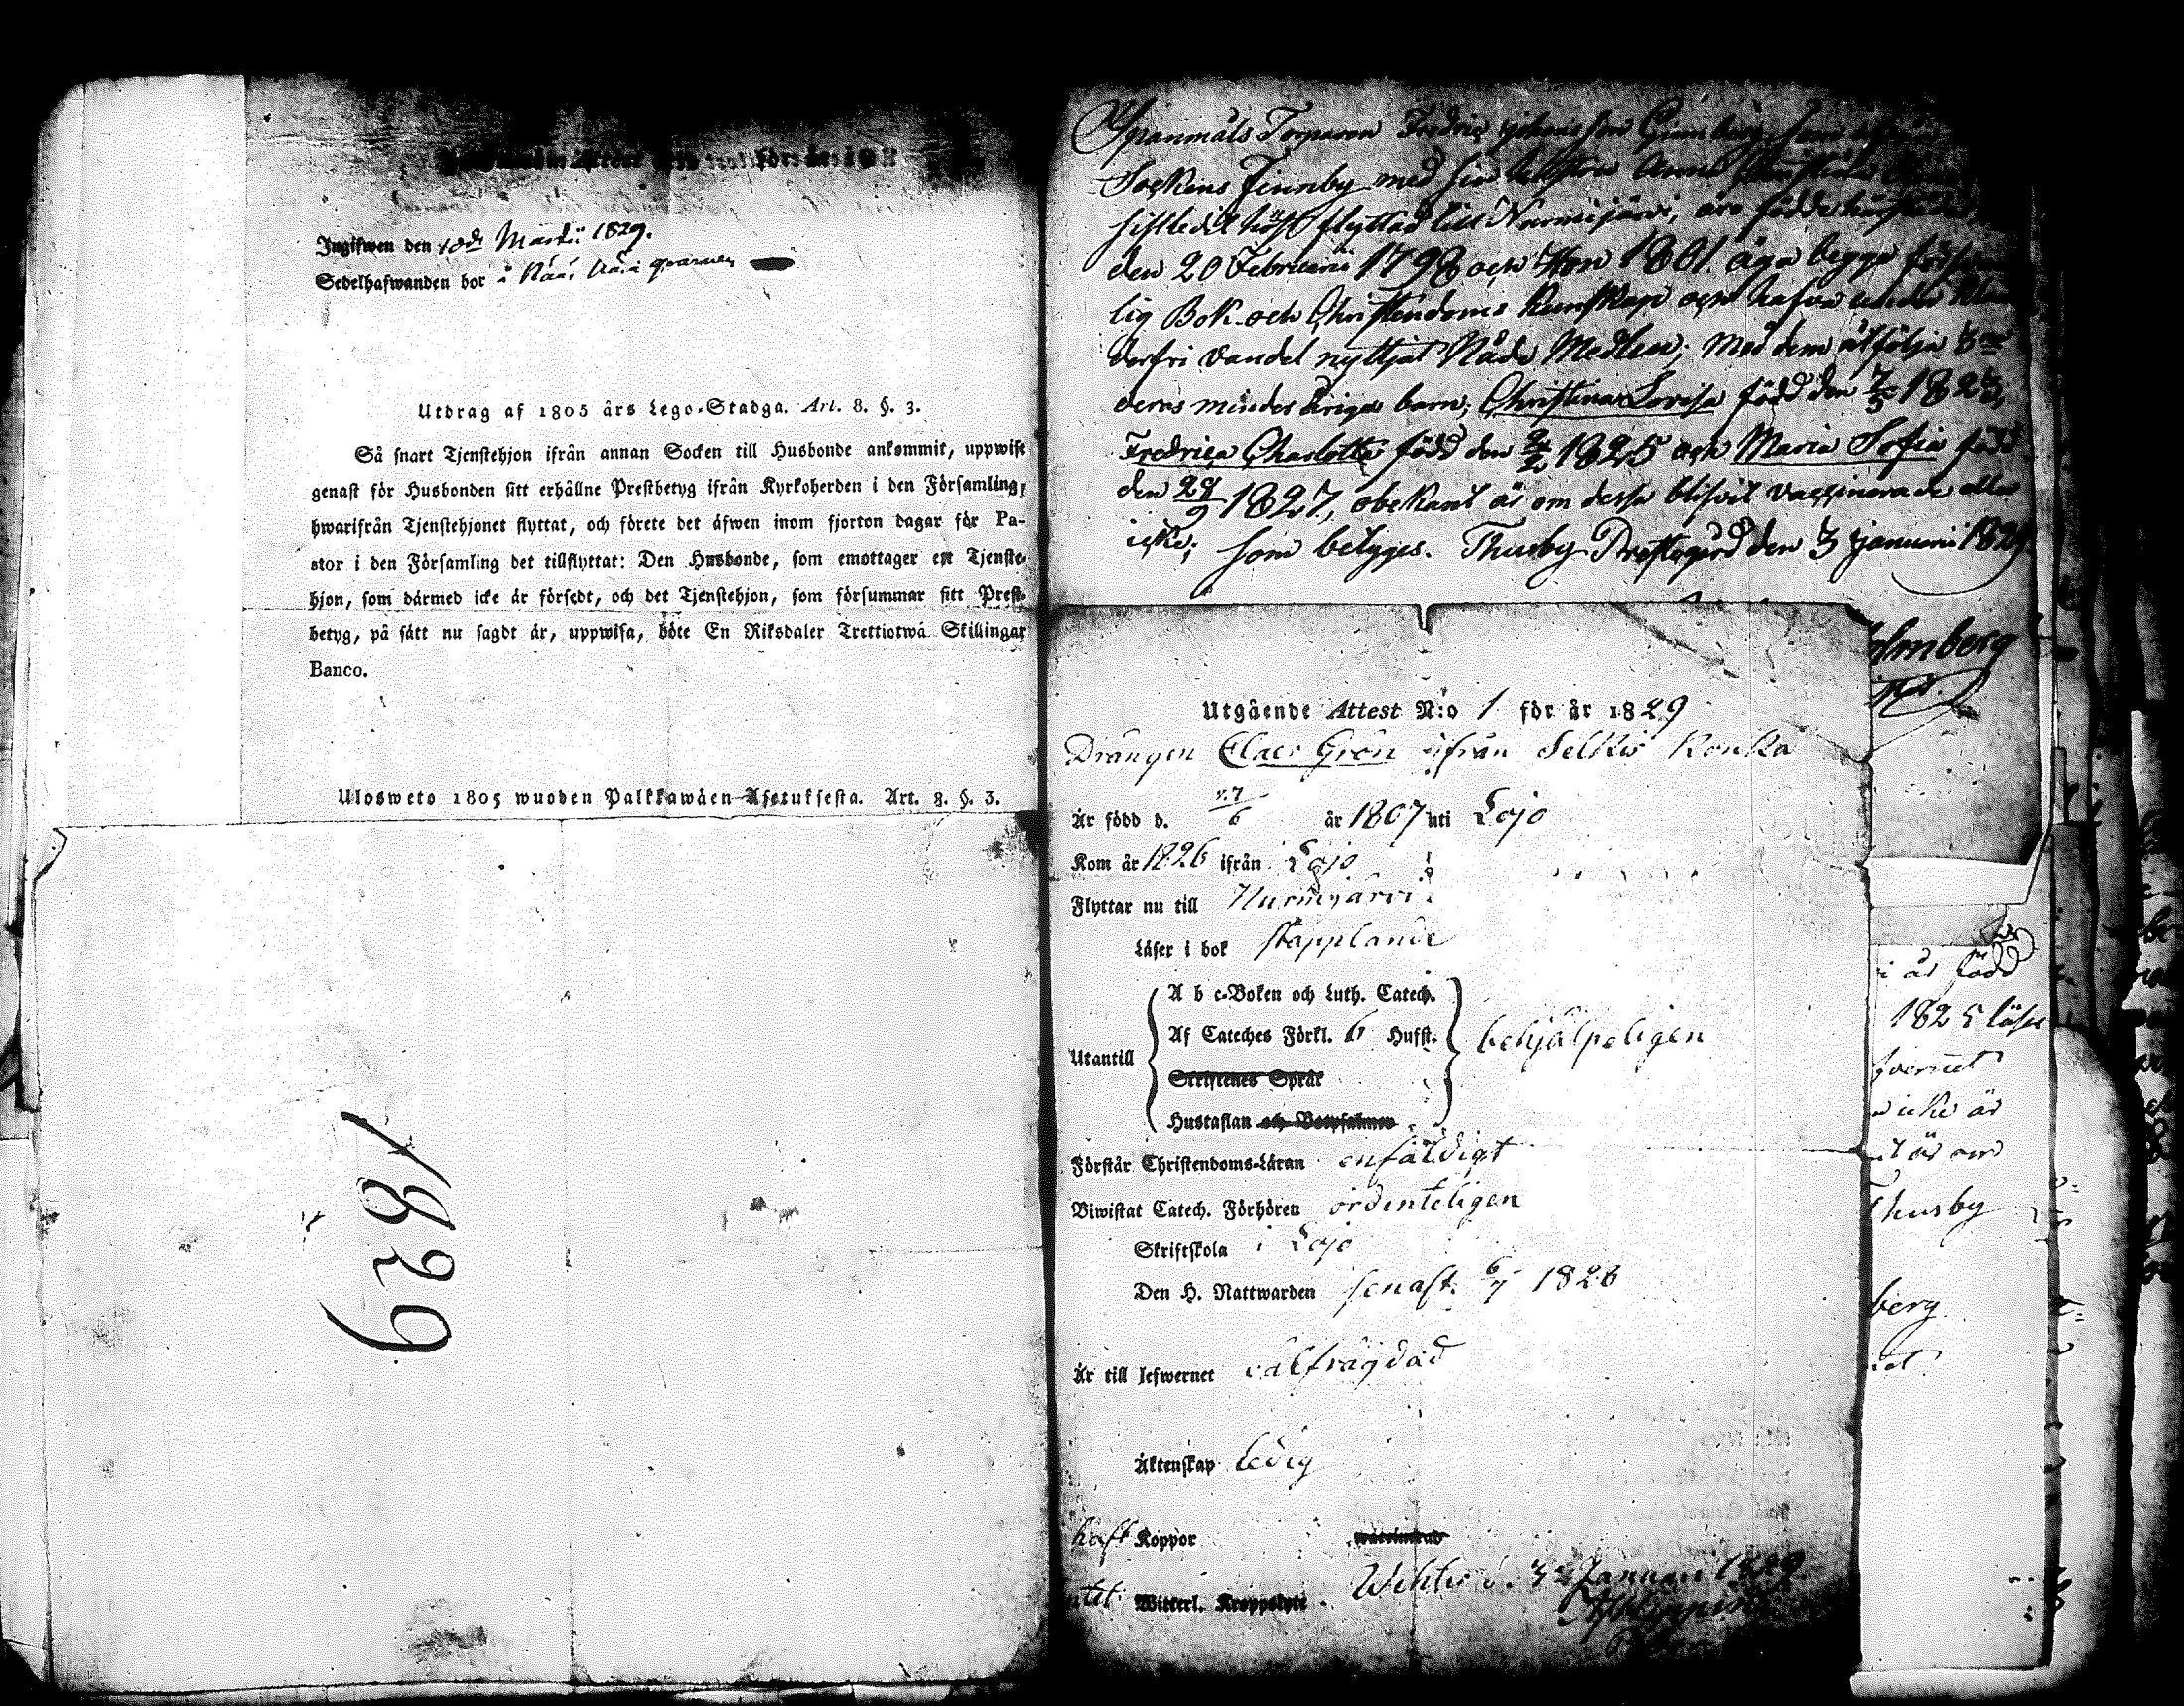 Ingifwen den 10de Martii 1829.
Sedelhafwanden bor i
Utdrag af 1805 års Lego-Stadga. Art. 8. §. 3.
Så snart Tjenstehjon ifrån annan Socken till Husbonde ankommit, uppwise
genast för Husbonden sitt erhållne Prestbetyg ifrån Kyrkoherden i den Församling,
hwarifrån Tjenstehjonet flyttat, och förete det äfwen inom fjorton dagar för Pa-
stor i den Församling det tillflyttat: Den Husbonde, som emottager ett Tjenste-
hjon, som därmed icke är försedt, och det Tjenstehjon, som försummar sitt Prest-
betyg, på sätt nu sagdt är, uppwisa, böte En Riksdaler Trettiotwå Skillingar
Banco.
Ulosweto 1805 wuoden Palkkawäen-Asetuksesta. Art. 8. §. 3.
1829
Spanmåls Torparen Fredric Johansson
Sockens Finnby med sin Hustru Anna
sistledit höst flyttad till Nurmijärvi, äro födde
den 20 Februarii 1798 och Hon 1801. äga begge
lig Bok och Christendoms Kunskap och hafva under
derfri vandel nyttjat Nåde Medlen; Med dem åtfölja 3ne
deras minderåriga barn; Christina Lovisa född den 7/5 1823,
Fredrica Charlotta född den 2/2 1825 och Maria Sofia född
den 28/9 1827, obekant är om dessa blifvit vaccinerade eller
icke; som betyges. Thusby Prestegård den 3 Januarii 1829
olmberg
Utgående Attest N:o 1 för år 1829
Drängen Claes Grön ifrån Selkis Konka
Är född d. 27/6 år 1807 uti Lojo
Kom år 1826 ifrån Lojo
Flyttar nu till Nurmijärvi
Läser i bok stapplande
A b c-Boken och Luth. Catech.
Af Cateches Förkl. 6 Hufst.
Utantill behjälpeligen
Skriftenes Språk
Hustaflan och Botpsalmen
Förstår Christendoms-Läran enfäldigt
Biwistat Catech. Förhören ordenteligen
Skriftskola i Lojo
Den H. Nattwarden senast 6/7 1828
Är till lefwernet välfrägdad
Äktenskap ledig
haft Koppor
Witterl. Kroppslyte
Wihtis d. 3 Januari 1829
i är född
1825 läser
fvernet
icke är
t är om
Thusby
berg